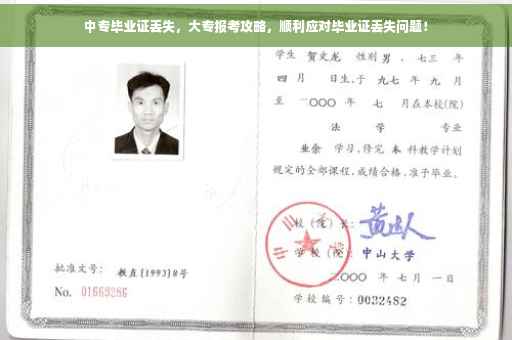 中专毕业证丢失，大专报考攻略，顺利应对毕业证丢失问题！
学生 贺文龙 性别 男 ，七三 年
四 月 日生，于 九七 年 九 月
至 二〇〇〇 年 七 月在本校(院)
法 学 专业
业余 学习，修完 本 科教学计划
规定的全部课程，成绩合格，准予毕业。
校（院）长：
学校（院）：中山大学
二〇〇〇 年 七 月 一 日
批准文号：教直[1993]8号
No. 01663286
学校编号：0032482